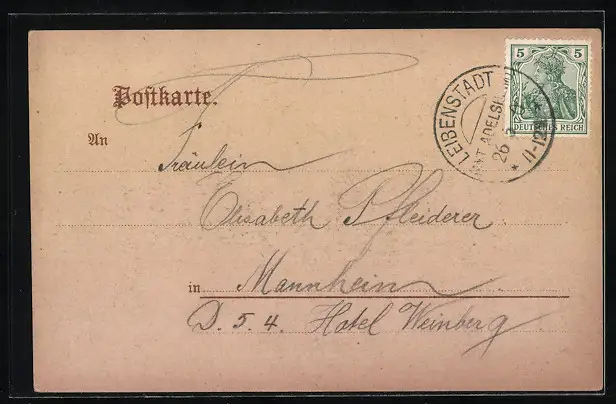 Postkarte.
5 5
DEUTSCHES REICH
LEIBENSTADT
26
11-12
An
Fräulein
Elisabeth Pfleiderer
in Mannheim
D. 5. 4. Hotel Weinberg